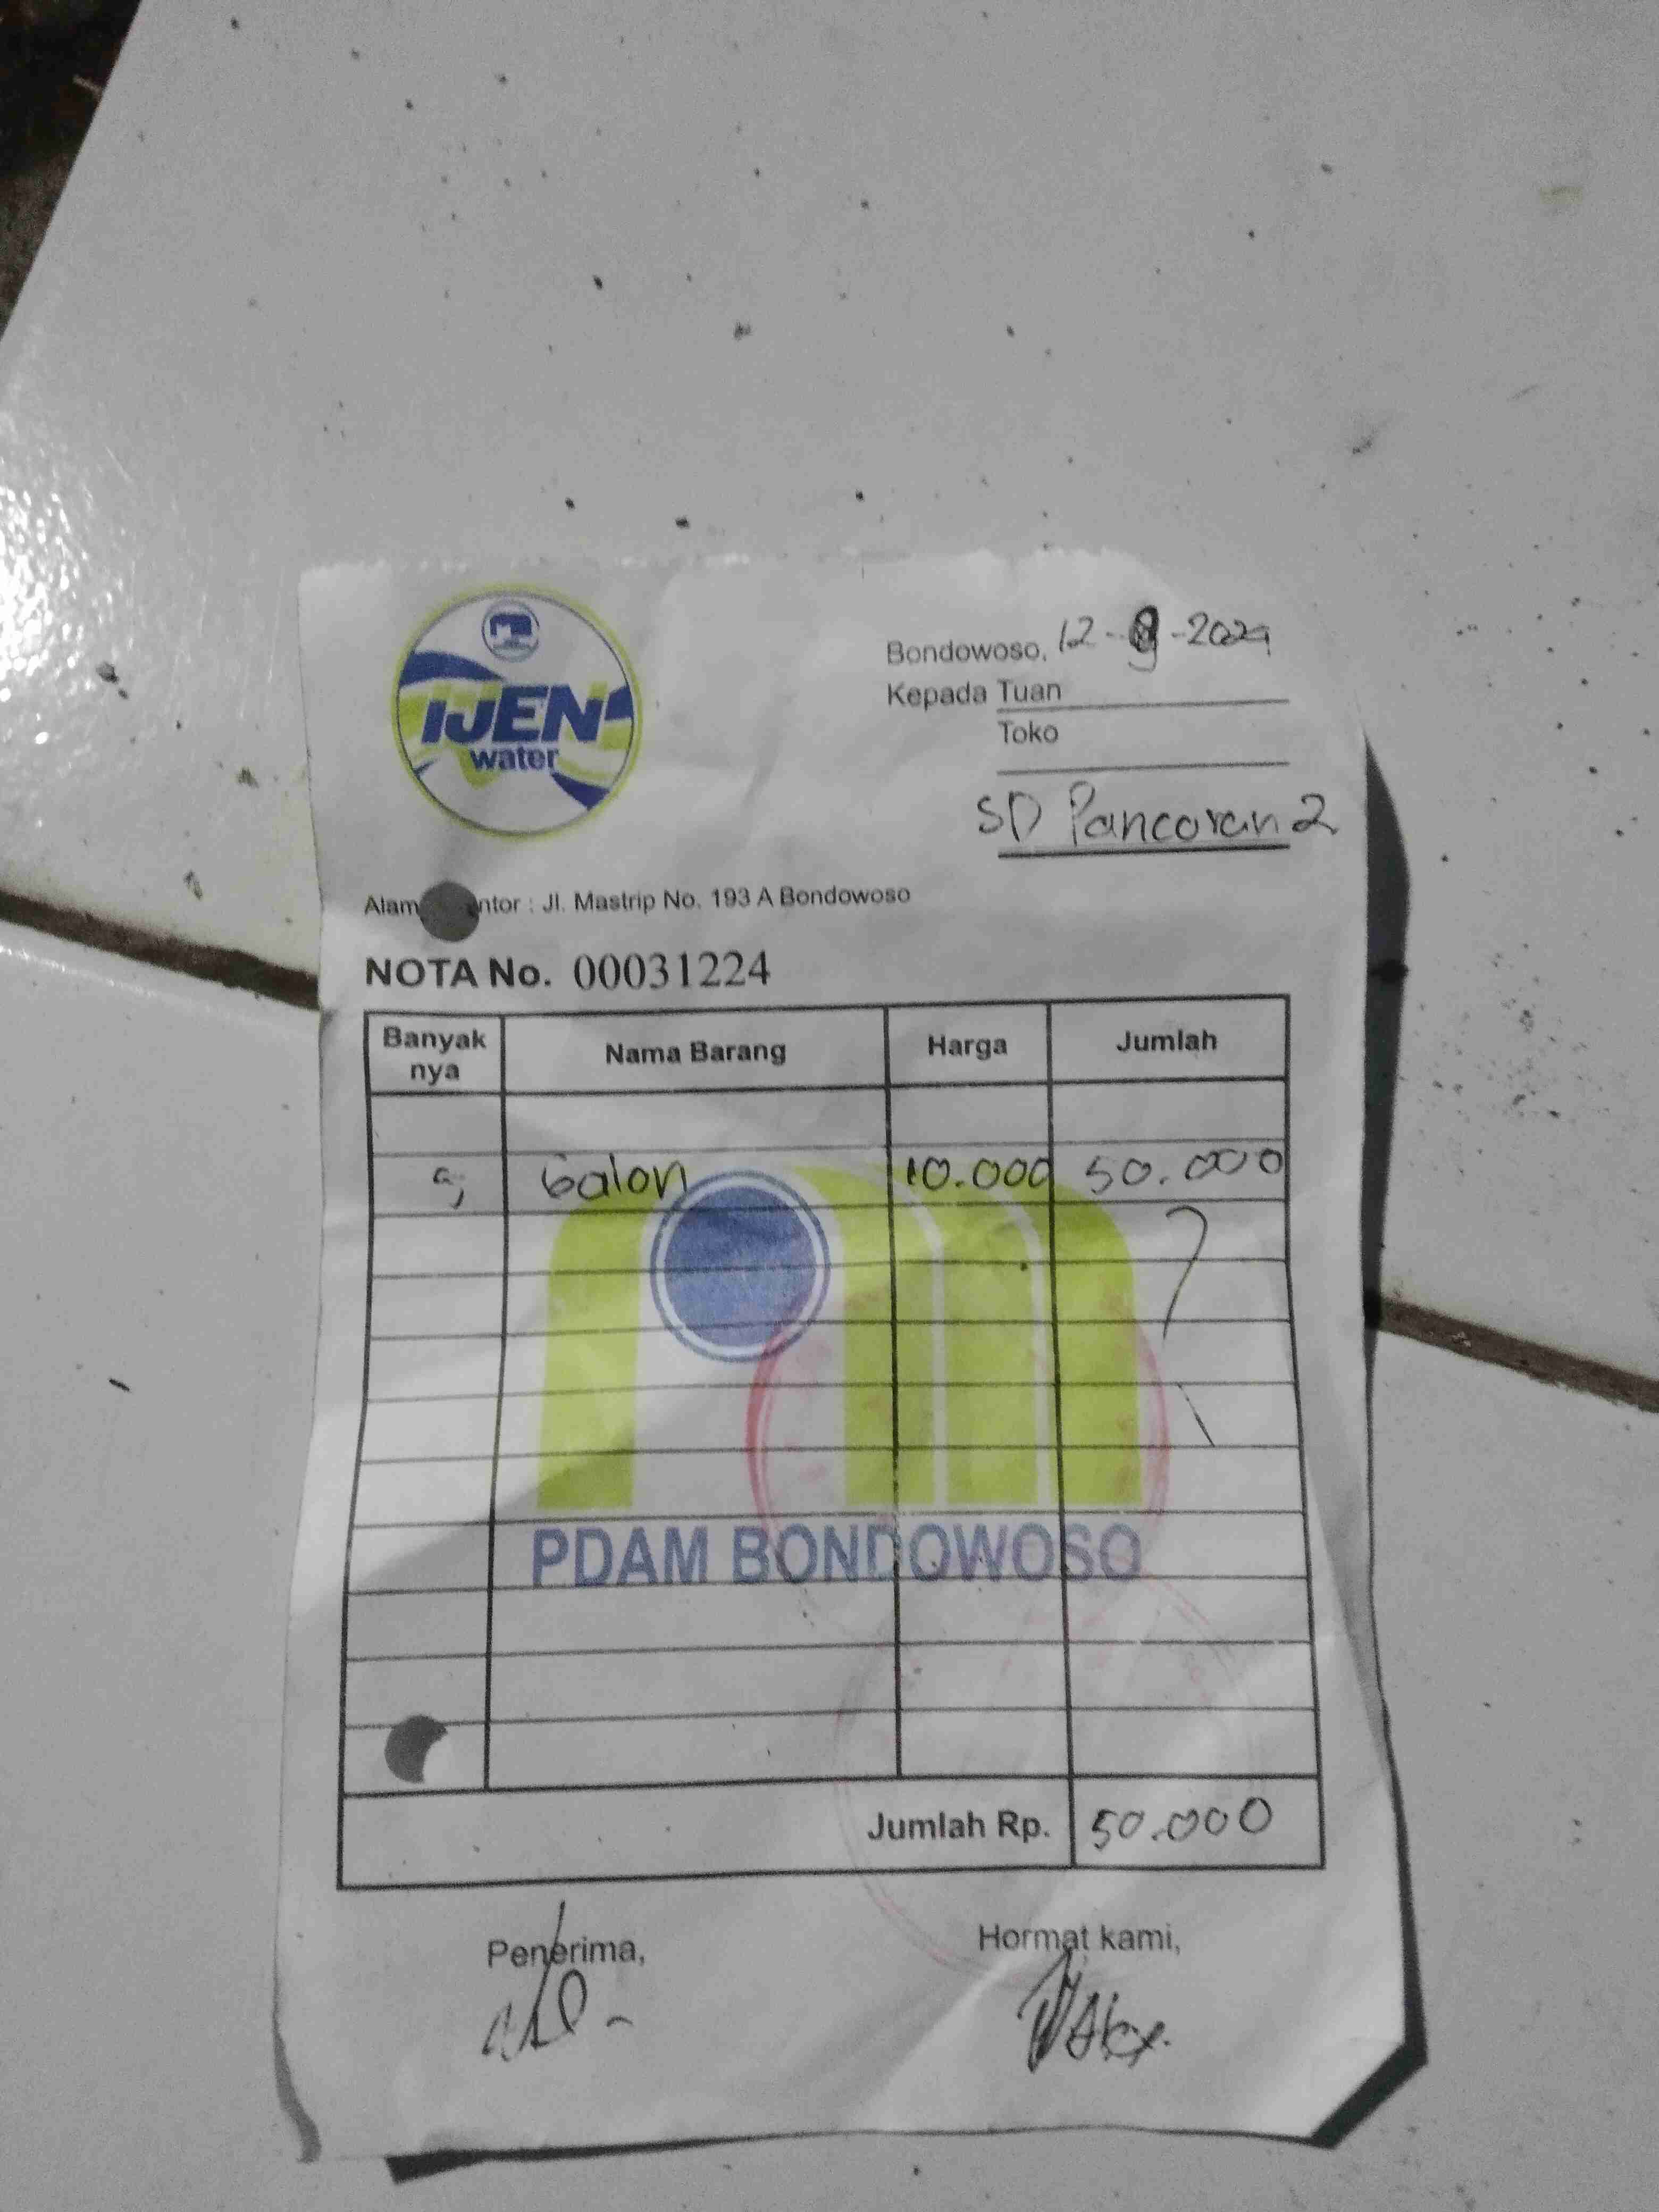 IJEN
water
Bondowoso, 12- -2024
Kepada Tuan
Toko
SD Pancoran 2
Alam ntor : Jl. Mastrip No. 193 A Bondowoso
NOTA No. 00031224
Banyak nya Nama Barang Harga Jumlah
5 Galon 10.000 50.000
PDAM BONDOWOSO
Jumlah Rp. 50.000
Penerima, Hormat kami,